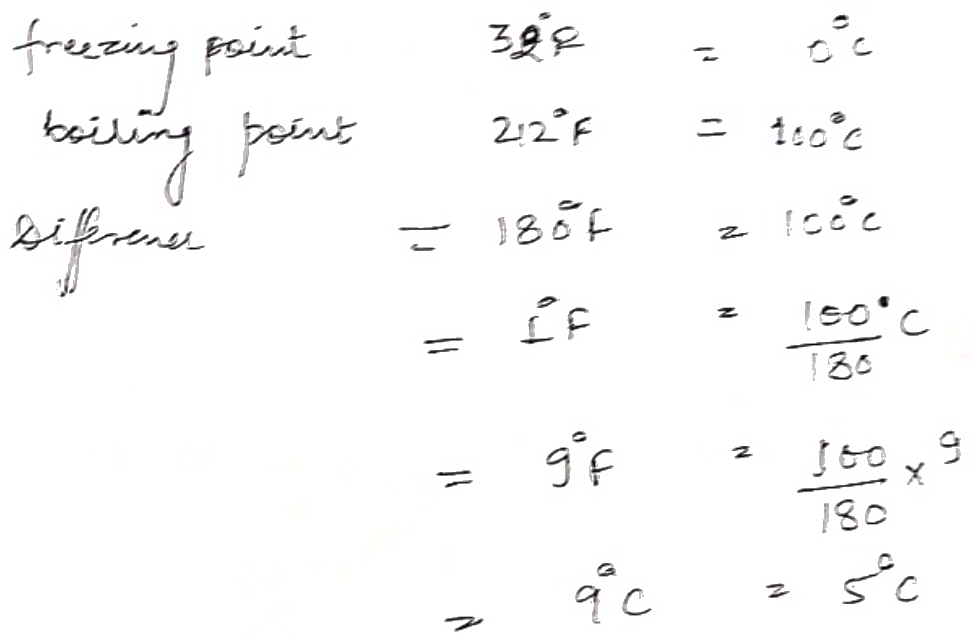 freezing point 32°F = 0°C
boiling point 212°F = 100°C
Difference = 180°F = 100°C
= 1°F = 100°C/180
= 9°F = 100/180 × 9
= 9°C = 5°C